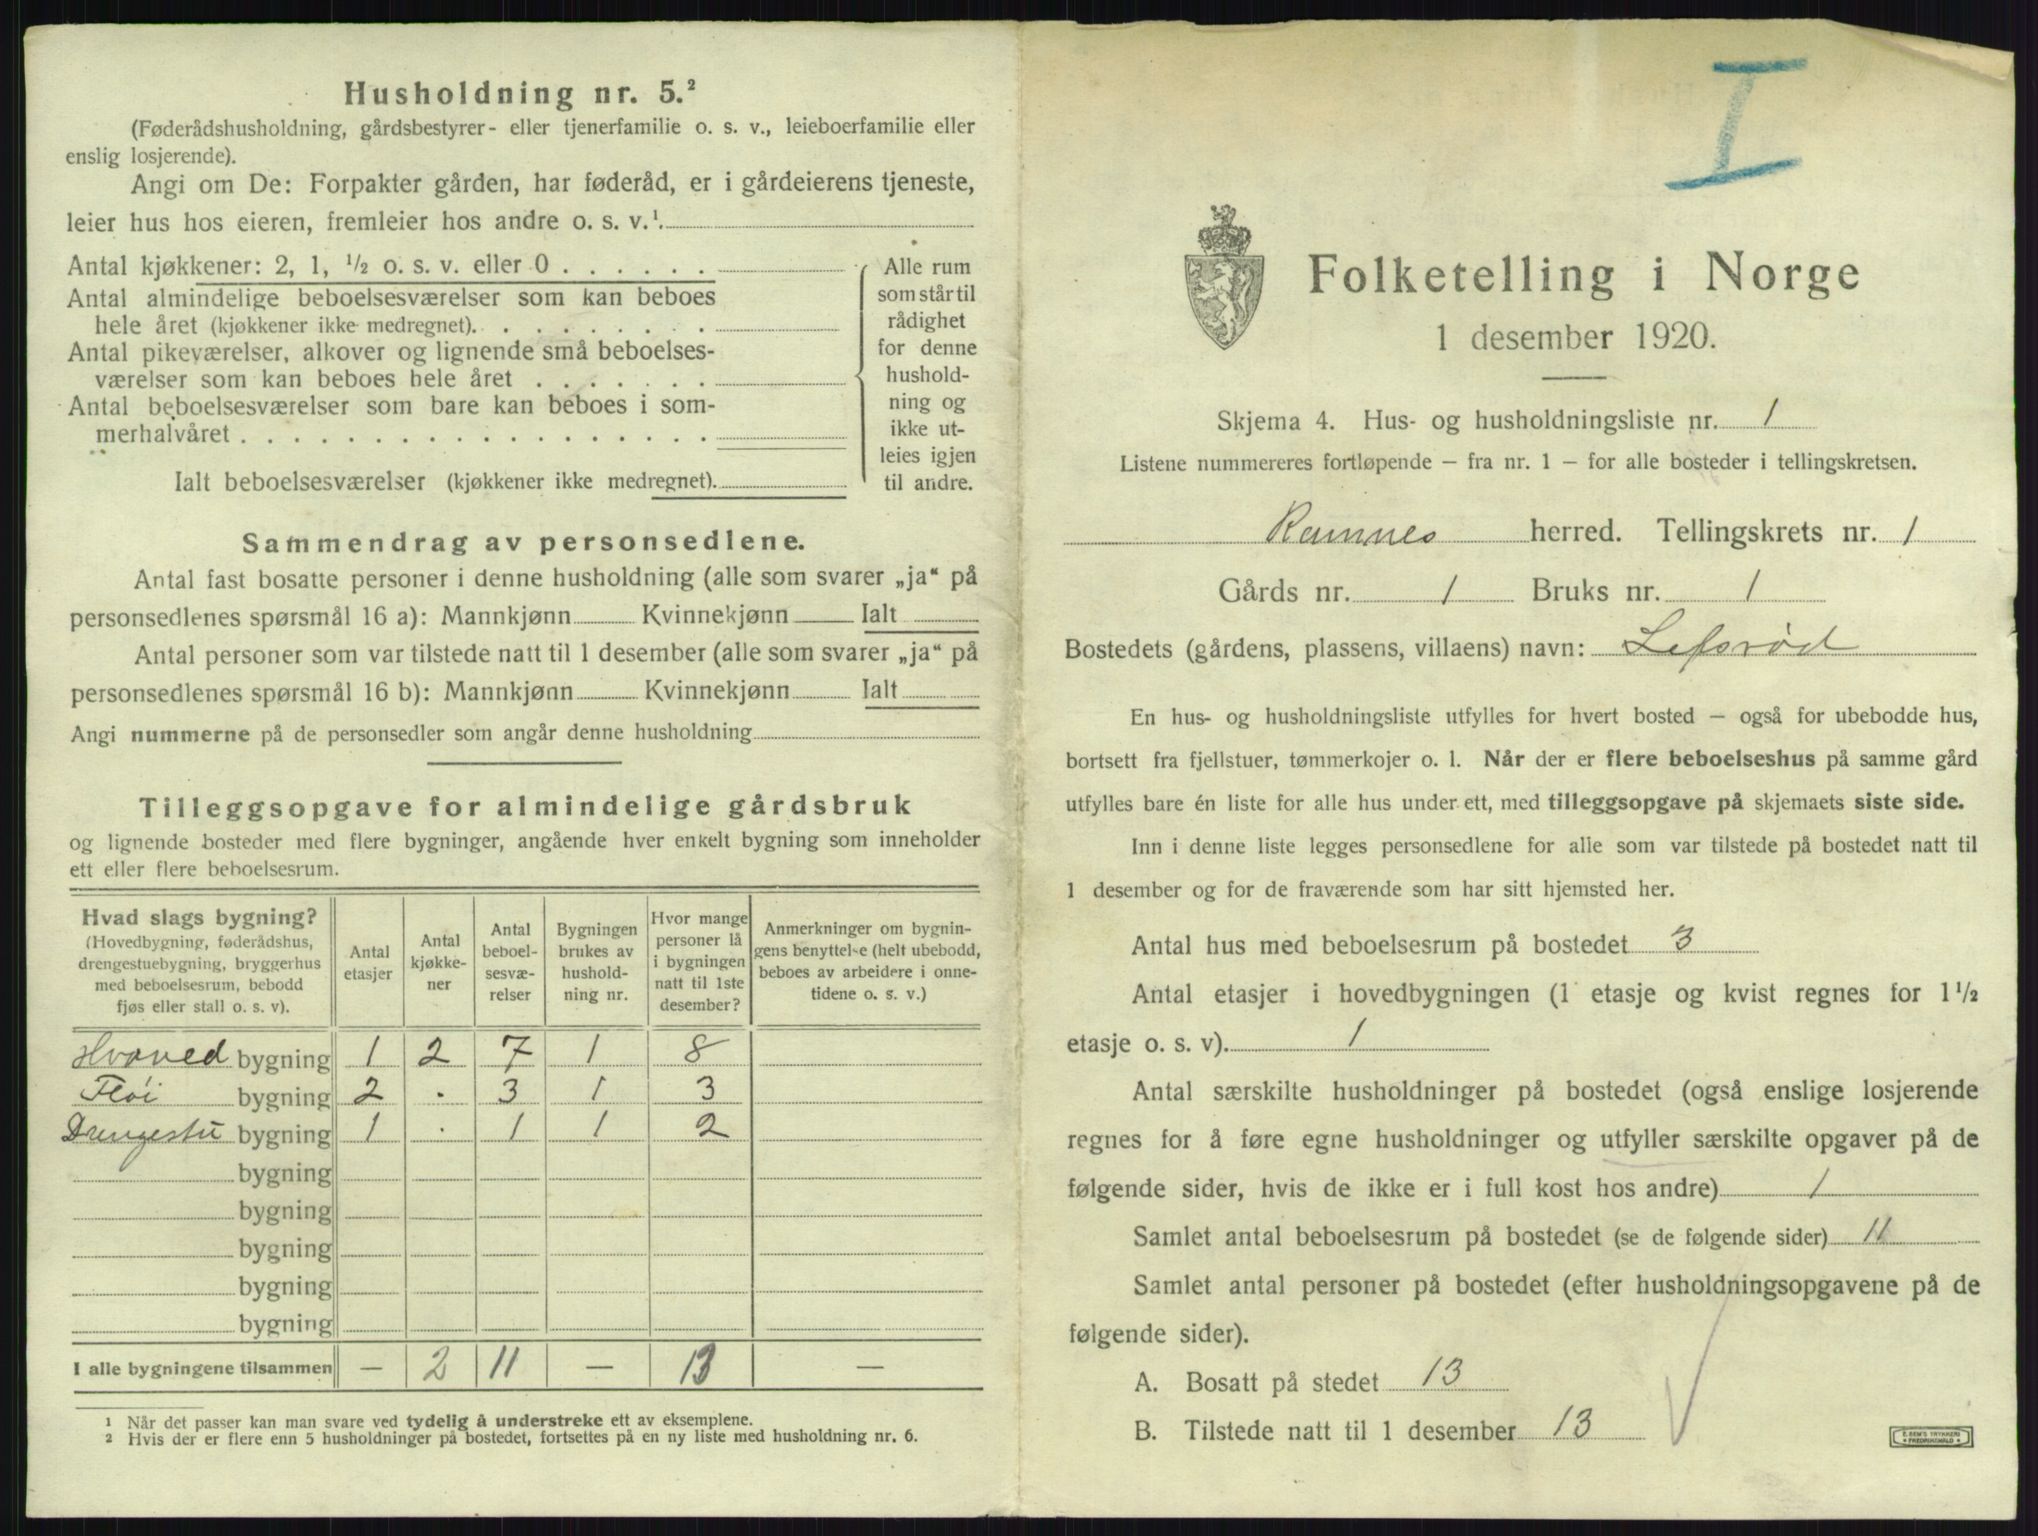 Husholdning nr. 5.²
(Føderådshusholdning, gårdsbestyrer- eller tjenerfamilie o. s. v., leieboerfamilie eller
enslig losjerende).
Angi om De: Forpakter gården, har føderåd, er i gårdeierens tjeneste,
leier hus hos eieren, fremleier hos andre o. s. v.¹.
Antal kjøkkener: 2, 1, ½ o. s. v. eller 0 . . . . . .
Antal almindelige beboelsesværelser som kan beboes
hele året (kjøkkener ikke medregnet). . . . . . . . .
Antal pikeværelser, alkover og lignende små beboelses-
værelser som kan beboes hele året . . . . . . .
Antal beboelsesværelser som bare kan beboes i som-
merhalvåret . . . . . . . . . . . . . . . . . .
Ialt beboelsesværelser (kjøkkener ikke medregnet).
Alle rum
som står til
rådighet
for denne
hushold-
ning og
ikke ut-
leies igjen
til andre.
Sammendrag av personsedlene.
Antal fast bosatte personer i denne husholdning (alle som svarer „ja“ på
personsedlenes spørsmål 16 a): Mannkjønn Kvinnekjønn Ialt
Antal personer som var tilstede natt til 1 desember (alle som svarer „ja“ på
personsedlenes spørsmål 16 b): Mannkjønn Kvinnekjønn Ialt
Angi nummerne på de personsedler som angår denne husholdning
Tilleggsopgave for almindelige gårdsbruk
og lignende bosteder med flere bygninger, angående hver enkelt bygning som inneholder
ett eller flere beboelsesrum.
Hvad slags bygning?
(Hovedbygning, føderådshus,
drengestuebygning, bryggerhus
med beboelsesrum, bebodd
fjøs eller stall o. s. v).
Antal
etasjer
Antal
kjøkke-
ner
Antal
beboel-
sesvæ-
relser
Bygningen
brukes av
hushold-
ning nr.
Hvor mange
personer lå
i bygningen
natt til 1ste
desember?
Anmerkninger om bygnin-
gens benyttelse (helt ubebodd,
beboes av arbeidere i onne-
tidene o. s. v.)
Hvoved bygning 1 2 7 1 8
Fløi bygning 2 . 3 1 3
Drengestu bygning 1 . 1 1 2
bygning
bygning
bygning
bygning
bygning
I alle bygningene tilsammen — 2 11 — 13 —
1 Når det passer kan man svare ved tydelig å understreke ett av eksemplene.
2 Hvis der er flere enn 5 husholdninger på bostedet, fortsettes på en ny liste med husholdning nr. 6.
I
Folketelling i Norge
1 desember 1920.
Skjema 4. Hus- og husholdningsliste nr. 1
Listene nummereres fortløpende — fra nr. 1 — for alle bosteder i tellingskretsen.
Ramnes herred. Tellingskrets nr. 1
Gårds nr. 1 Bruks nr. 1
Bostedets (gårdens, plassens, villaens) navn: Lefsrød
En hus- og husholdningsliste utfylles for hvert bosted — også for ubebodde hus,
bortsett fra fjellstuer, tømmerkojer o. l. Når der er flere beboelseshus på samme gård
utfylles bare én liste for alle hus under ett, med tilleggsopgave på skjemaets siste side.
Inn i denne liste legges personsedlene for alle som var tilstede på bostedet natt til
1 desember og for de fraværende som har sitt hjemsted her.
Antal hus med beboelsesrum på bostedet 3
Antal etasjer i hovedbygningen (1 etasje og kvist regnes for 1½
etasje o. s. v). 1
Antal særskilte husholdninger på bostedet (også enslige losjerende
regnes for å føre egne husholdninger og utfyller særskilte opgaver på de
følgende sider, hvis de ikke er i full kost hos andre) 1
Samlet antal beboelsesrum på bostedet (se de følgende sider) 11
Samlet antal personer på bostedet (efter husholdningsopgavene på de
følgende sider).
A. Bosatt på stedet 13
B. Tilstede natt til 1 desember 13
E. SEM'S TRYKKERI
• FREDRIKSHALD •